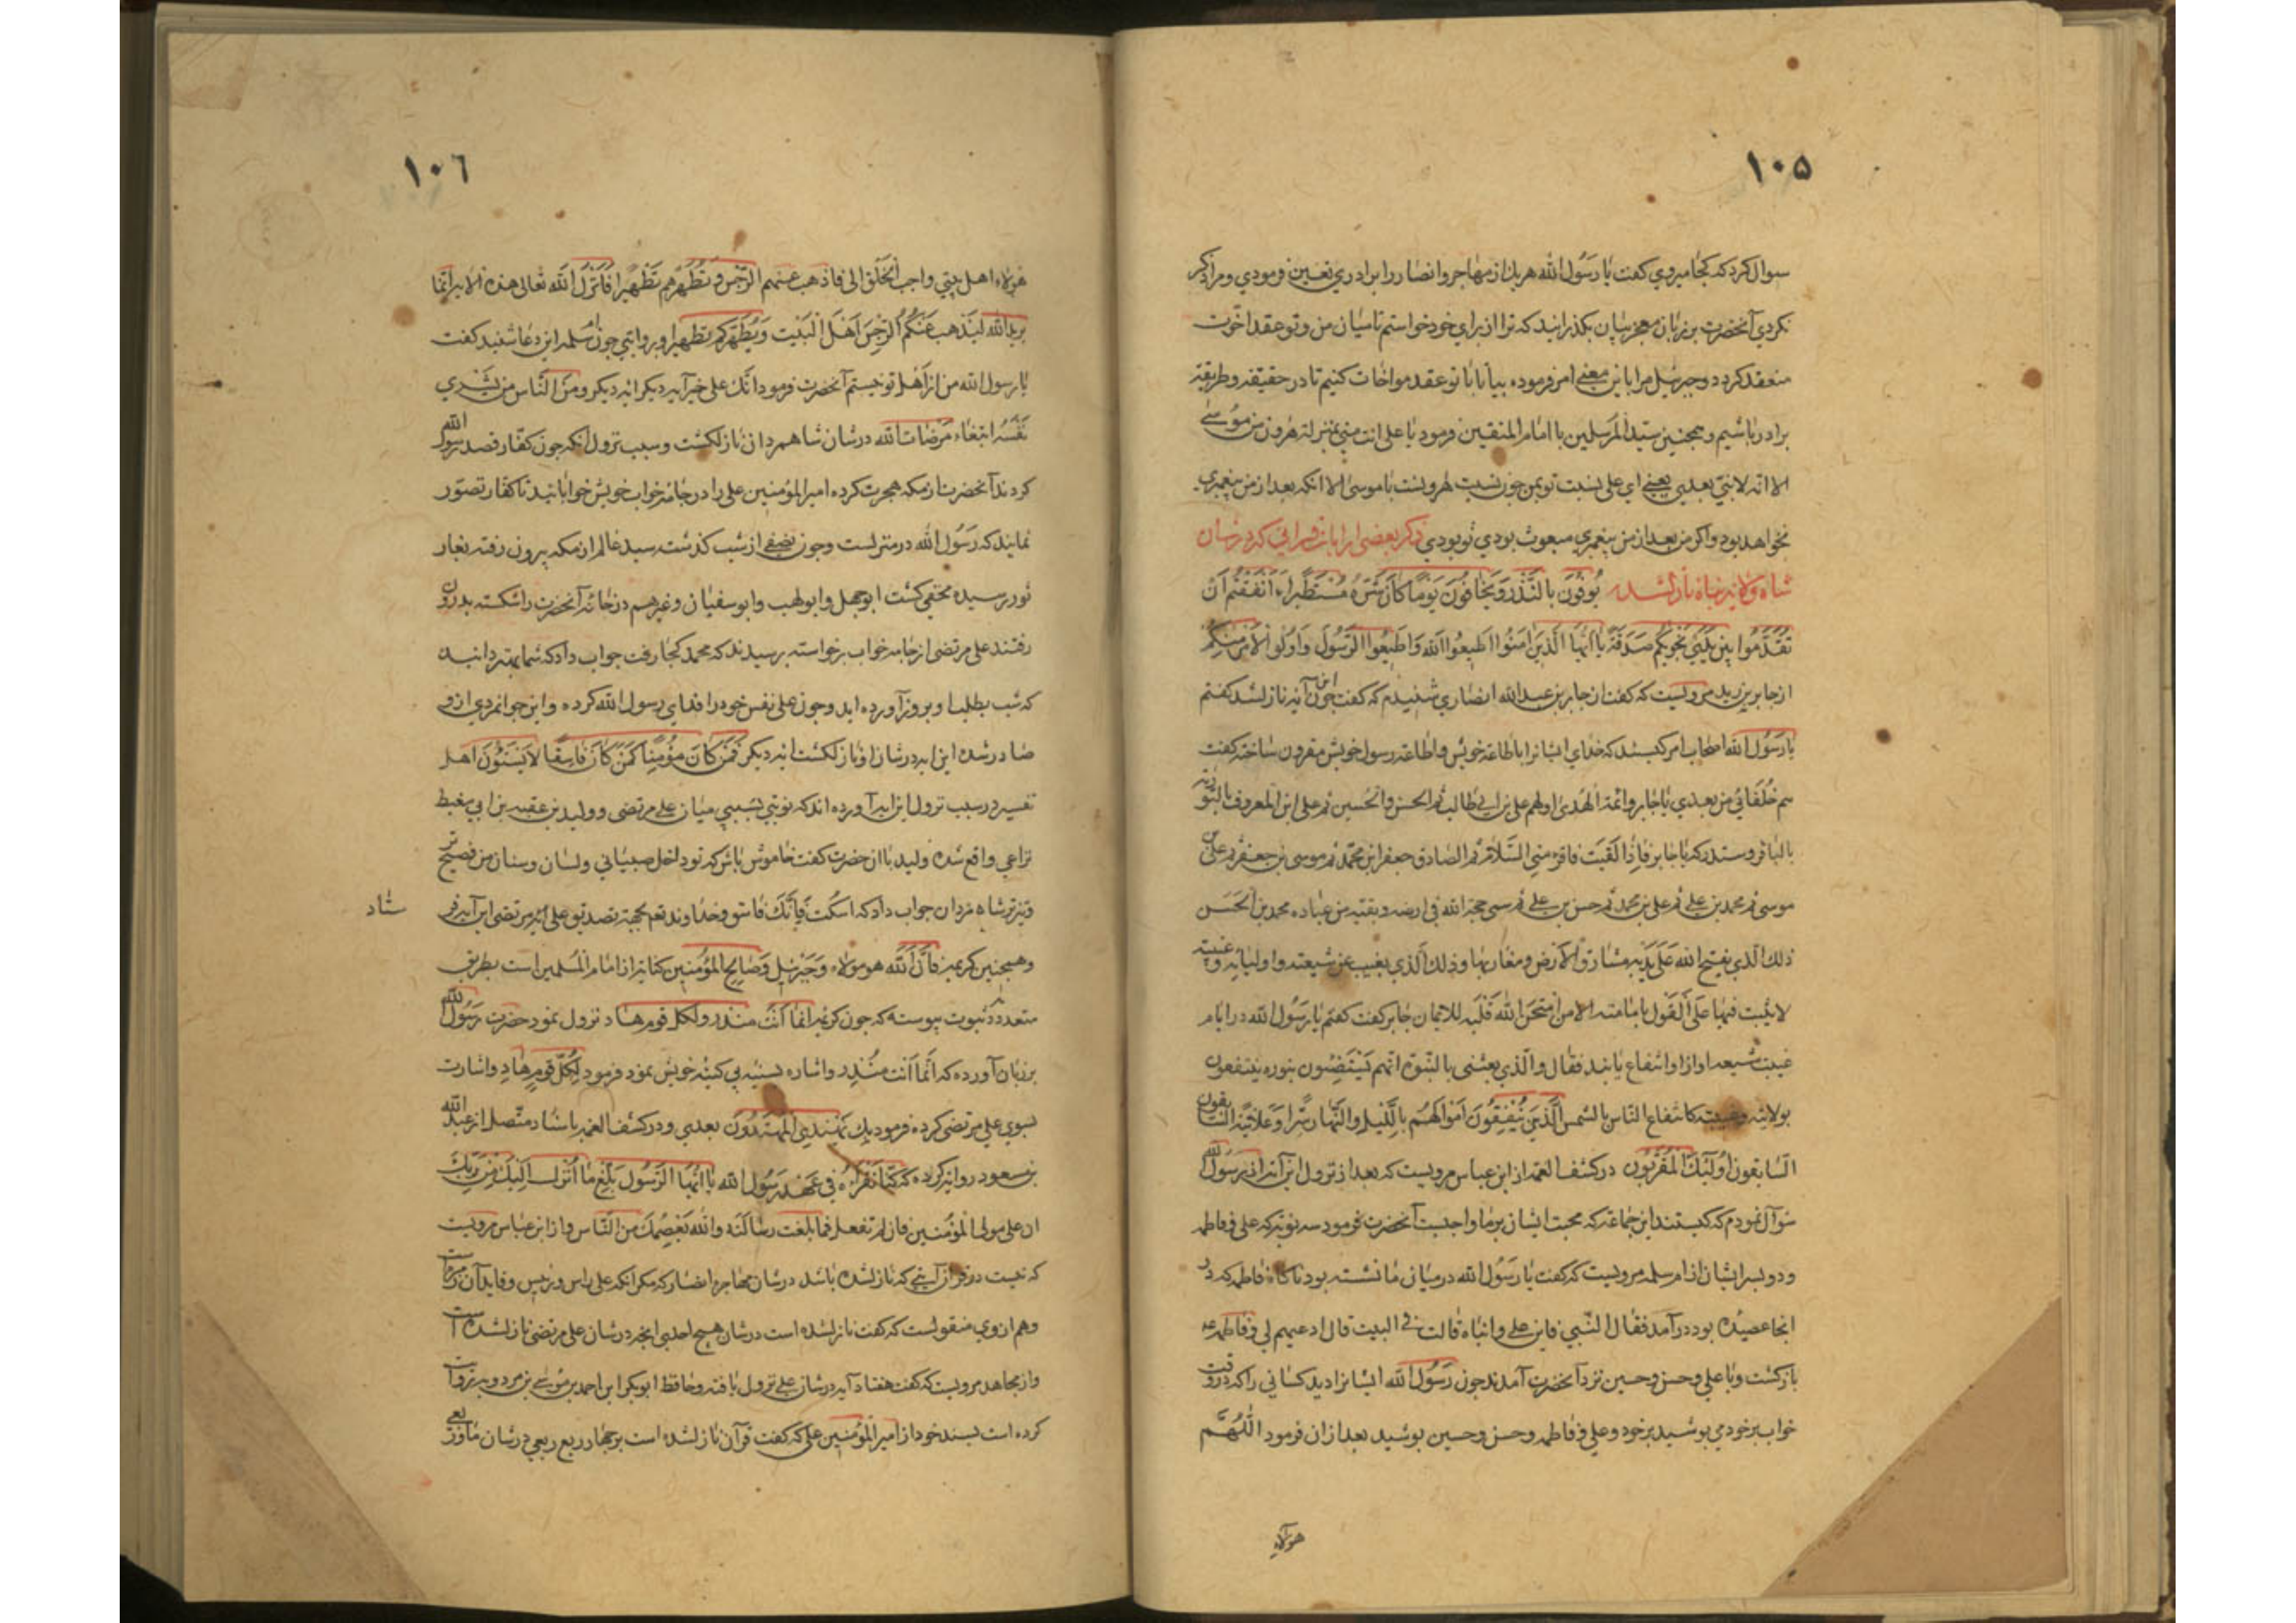 ١٠۵
سوال کرد که کجا میروی کفت یا رسول الله هر یک از مهاجر و انصار را برادری تعیین فرمودی و مرا ذکر
نکردی آنحضرت بر زبان معجز بیان بکذرانید که ترا از برای خود خواستم تا میان من و تو عقد اخوت
منعقد کردد و جبرئیل مرا باین معنی امر فرموده بیا تا با تو عقد مواخات کنیم تا در حقیقة و طریقة
برادر باشیم و همچنین سید المرسلین با امام المتقین فرمود یا علی انت منی بمنزلة هرون من موسی
الا انه لا نبی بعدی یعنی ای علی نسبت تو بمن چون نسبت هرونست با موسی الا انکه بعد از من پیغمبری
نخواهد بود و اکر من بعد از من پیغمبری مبعوث بودی تو بودی ذکر بعضی از ایات قرانی که در شان
شاه ولایة پناه نازلشد یُوفُونَ بِالنَّذْرِ وَیَخَافُونَ یَوْمًا کَانَ شَرُّهُ مُسْتَطِیرًا ءَاَشْفَقْتُمْ اَنْ
تُقَدِّمُوا بَیْنَ یَدَیْ نَجْوٰیکُمْ صَدَقَةً یَا اَیُّهَا الَّذِینَ اٰمَنُوا اَطِیعُوا اللّٰهَ وَاَطِیعُوا الرَّسُولَ وَاُولُو الْاَمْرِ مِنْکُمْ
از جابر بن زید مرویست که کفت از جابر بن عبد الله انصاری شنیدم که کفت چون این آیه نازلشد کفتم
یا رسول الله اصحاب امر کیستند که خدای ایشانرا باطاعة خویش و اطاعة رسول خویش مقرون ساخته کفت
هم خلفائی من بعدی یا جابر و ائمة الهدی اولهم علی بن ابی طالب ثم الحسن والحسین ثم علی ابن المعروف بالتوریة
بالباقر وستدرکه یا جابر فاذا لقیت فاقره منی السلام ثم الصادق جعفر ابن محمد ثم موسی بن جعفر ثم علی بن
موسی ثم محمد بن علی ثم علی بن محمد ثم حسن بن علی ثم سمی حجة الله فی ارضه و بقیته من عباده محمد بن الحسن
ذلک الذی یفتح الله علی یدیه مشارق الارض ومغاربها وذلک الذی یغیب عن شیعته واولیائه غیبة
لا یثبت فیها علی القول بامامته الا من امتحن الله قلبه للایمان جابر کفت کفتم یا رسول الله در ایام
غیبت شیعه او از او انتفاع یابند فقال والذی بعثنی بالنبوة انهم لیستضیئون بنوره ینتفعون
بولایته وغیبته کانتفاع الناس بالشمس الَّذِینَ یُنْفِقُونَ اَمْوَالَهُمْ بِاللَّیْلِ وَالنَّهَارِ سِرًّا وَعَلَانِیَةً السابقون
السابقون اولئک المقربون در کشف الغمه از ابن عباس مرویست که بعد از نزول این آیه از رسول الله
سوآل نمودم که کیستند این جماعة که محبت ایشان بر ما واجبست آنحضرت فرمود سه نوبة که علی و فاطمه
و دو پسر ایشان از ام سلمه مرویست که کفت یا رسول الله در میانی ما نشسته بود ناکاه فاطمه که در
انجا عصیده بود درآمد فقال النبی فاین علی وابناه قالت فی البیت قال ادعیهم لی و فاطمه
بازکشت و با علی و حسن و حسین نزد آنحضرت آمدند چون رسول الله ایشانرا دید کسائی را که در وقت
خواب بر خود می پوشید بر خود و علی و فاطمه و حسن و حسین پوشید بعد از ان فرمود اللهم
هؤلاء
١٠٦
هؤلاء اهل بیتی واحب الخلق الی فاذهب عنهم الرجس وتطهرهم تطهیرا فانزل الله تعالی هذه الایة انما
یرید الله لیذهب عنکم الرجس اهل البیت ویطهرکم تطهیرا و بروایتی چون ام سلمه این دعا شنید کفت
یا رسول الله من از اهل تو نیستم آنحضرت فرمود انک علی خیر آیه دیکر ومن الناس من یشری
نفسه ابتغاء مرضات الله در شان شاه مردان نازلکشت و سبب نزول انکه چون کفار قصد رسول الله
کردند آنحضرت از مکه هجرت کرده امیر المؤمنین علی را در جامۀ خواب خویش خوابانید تا کفار تصور
نمایند که رسول الله در منزلست و چون نصفی از شب کذشت سید عالم از مکه بیرون رفته بغار
ثور رسیده مخفی کشت ابوجهل و ابولهب و ابوسفیان و غیرهم در خانۀ آنحضرت را شکسته بدرون
رفتند علی مرتضی از جامه خواب برخواسته پرسیدند که محمد کجا رفت جواب داد که شما بهتر دانید
که شب بطلب او بروز آورده اید و چون علی نفس خود را فدای رسول الله کرده و این جوانمردی از و
صادر شده این ایه در شان او نازلکشت ایه دیکر فَمَنْ کَانَ مُؤْمِنًا کَمَنْ کَانَ فَاسِقًا لَا یَسْتَوُونَ اهل
تفسیر در سبب نزول این ایه آورده اند که نوبتی بسببی میان علی مرتضی و ولید بن عقبه بن ابی معیط
نزاعی واقع شده ولید با ان حضرت کفت خاموش باش که تو داخل صبیانی و لسان و سنان من فصیح تر
و تیزتر شاه مردان جواب داد که اسکت فانک فاسق و خداوند تعم بجهة تصدیق علی مرتضی این آیه فر
ستاد
و همچنین کریمه فَاِنَّ اللّٰهَ هو مولاه وجبرئیل وصالح المؤمنین کنایة از امام المسلمین است بطریق
متعدده ثبوت پیوسته که چون کریمه انما انت منذر ولکل قوم هاد نزول نمود حضرت رسول الله
بر زبان آورده که انما انت منذر و اشاره بسینه بی کینه خویش نمود فرمود لکل قوم هاد و اشارت
بسوی علی مرتضی کرده فرمود بک یهتدی المهتدون بعدی و در کشف الغمه باسناد متصل از عبد الله
بن مسعود روایة کرده که کنا نقراء فی عهد رسول الله یا ایها الرسول بلغ ما انزل الیک من ربک
ان علی مولی المؤمنین فان لم تفعل فما بلغت رسالته والله یعصمک من الناس و از ابن عباس مرویست
که نیست در قرآن آیتی که نازلشده باشد در شان مهاجر و انصار که مکر انکه علی راس و رئیس و قاید آن
وهم از وی منقولست که کفت نازلشده است در شان هیچ احدی انچه در شان علی مرتضی نازلشده است
و از مجاهد مرویست که کفت هفتاد آیه در شان علی نزول یافته و حافظ ابوبکر ابن احمد بن موسی بن مردویه روایت
کرده است بسند خود از امیر المؤمنین علی که کفت قرآن نازلشده است بر چهار ربع ربعی در شان ما و ربعی